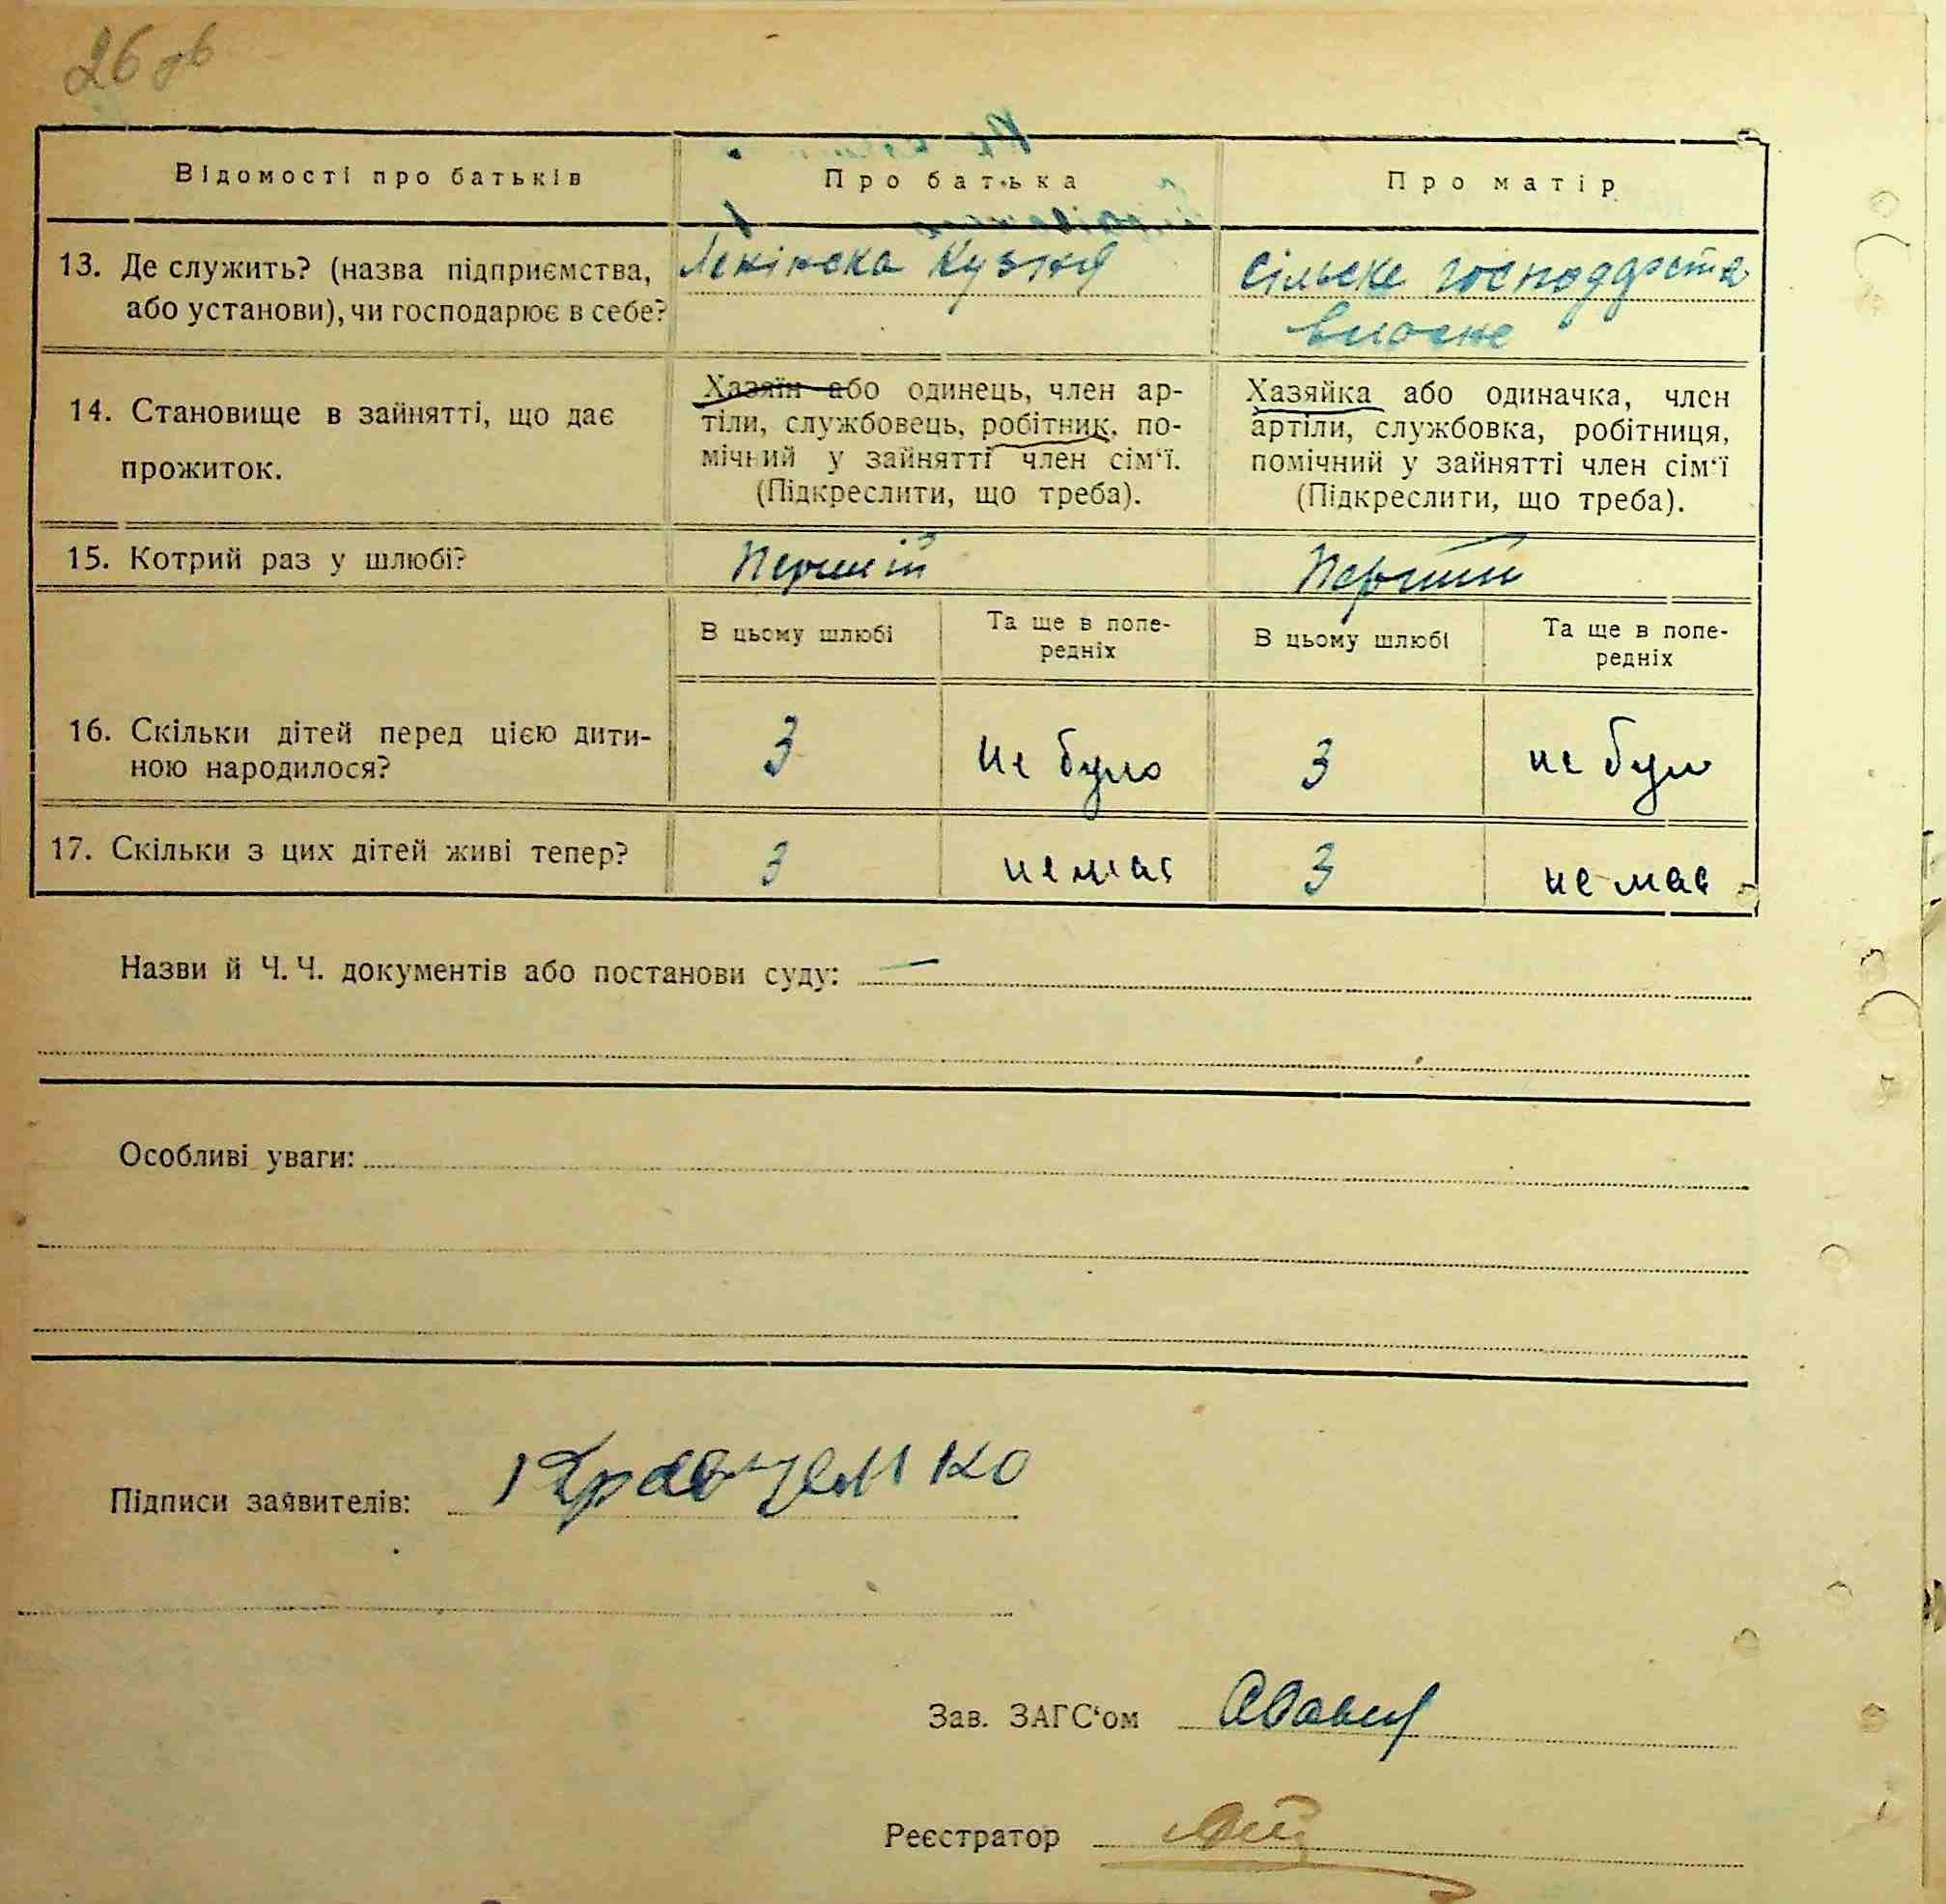 26 зв
Відомості про батьків
Про батька
Про матір
13. Де служить? (назва підприємства, або установи), чи господарює в себе?
Ленінска Кузня
сільске господарства
власне
14. Становище в зайнятті, що дає
прожиток.
Хазяїн або одинець, член ар-
тіли, службовець, робітник, по-
мічний у зайнятті член сім‘ї.
(Підкреслити, що треба).
Хазяйка або одиначка, член
артіли, службовка, робітниця,
помічний у зайнятті член сім‘ї
(Підкреслити, що треба).
15. Котрий раз у шлюбі?
Перший
Перший
В цьому шлюбі
Та ще в попе-
редніх
В цьому шлюбі
Та ще в попе-
редніх
16. Скільки дітей перед цією дити-
ною народилося?
3
не було
3
не було
17. Скільки з цих дітей живі тепер?
3
немає
3
немає
Назви й Ч. Ч. документів або постанови суду: —
Особливі уваги:
Підписи заявителів: Кравченко
Зав. ЗАГС‘ом
Реєстратор